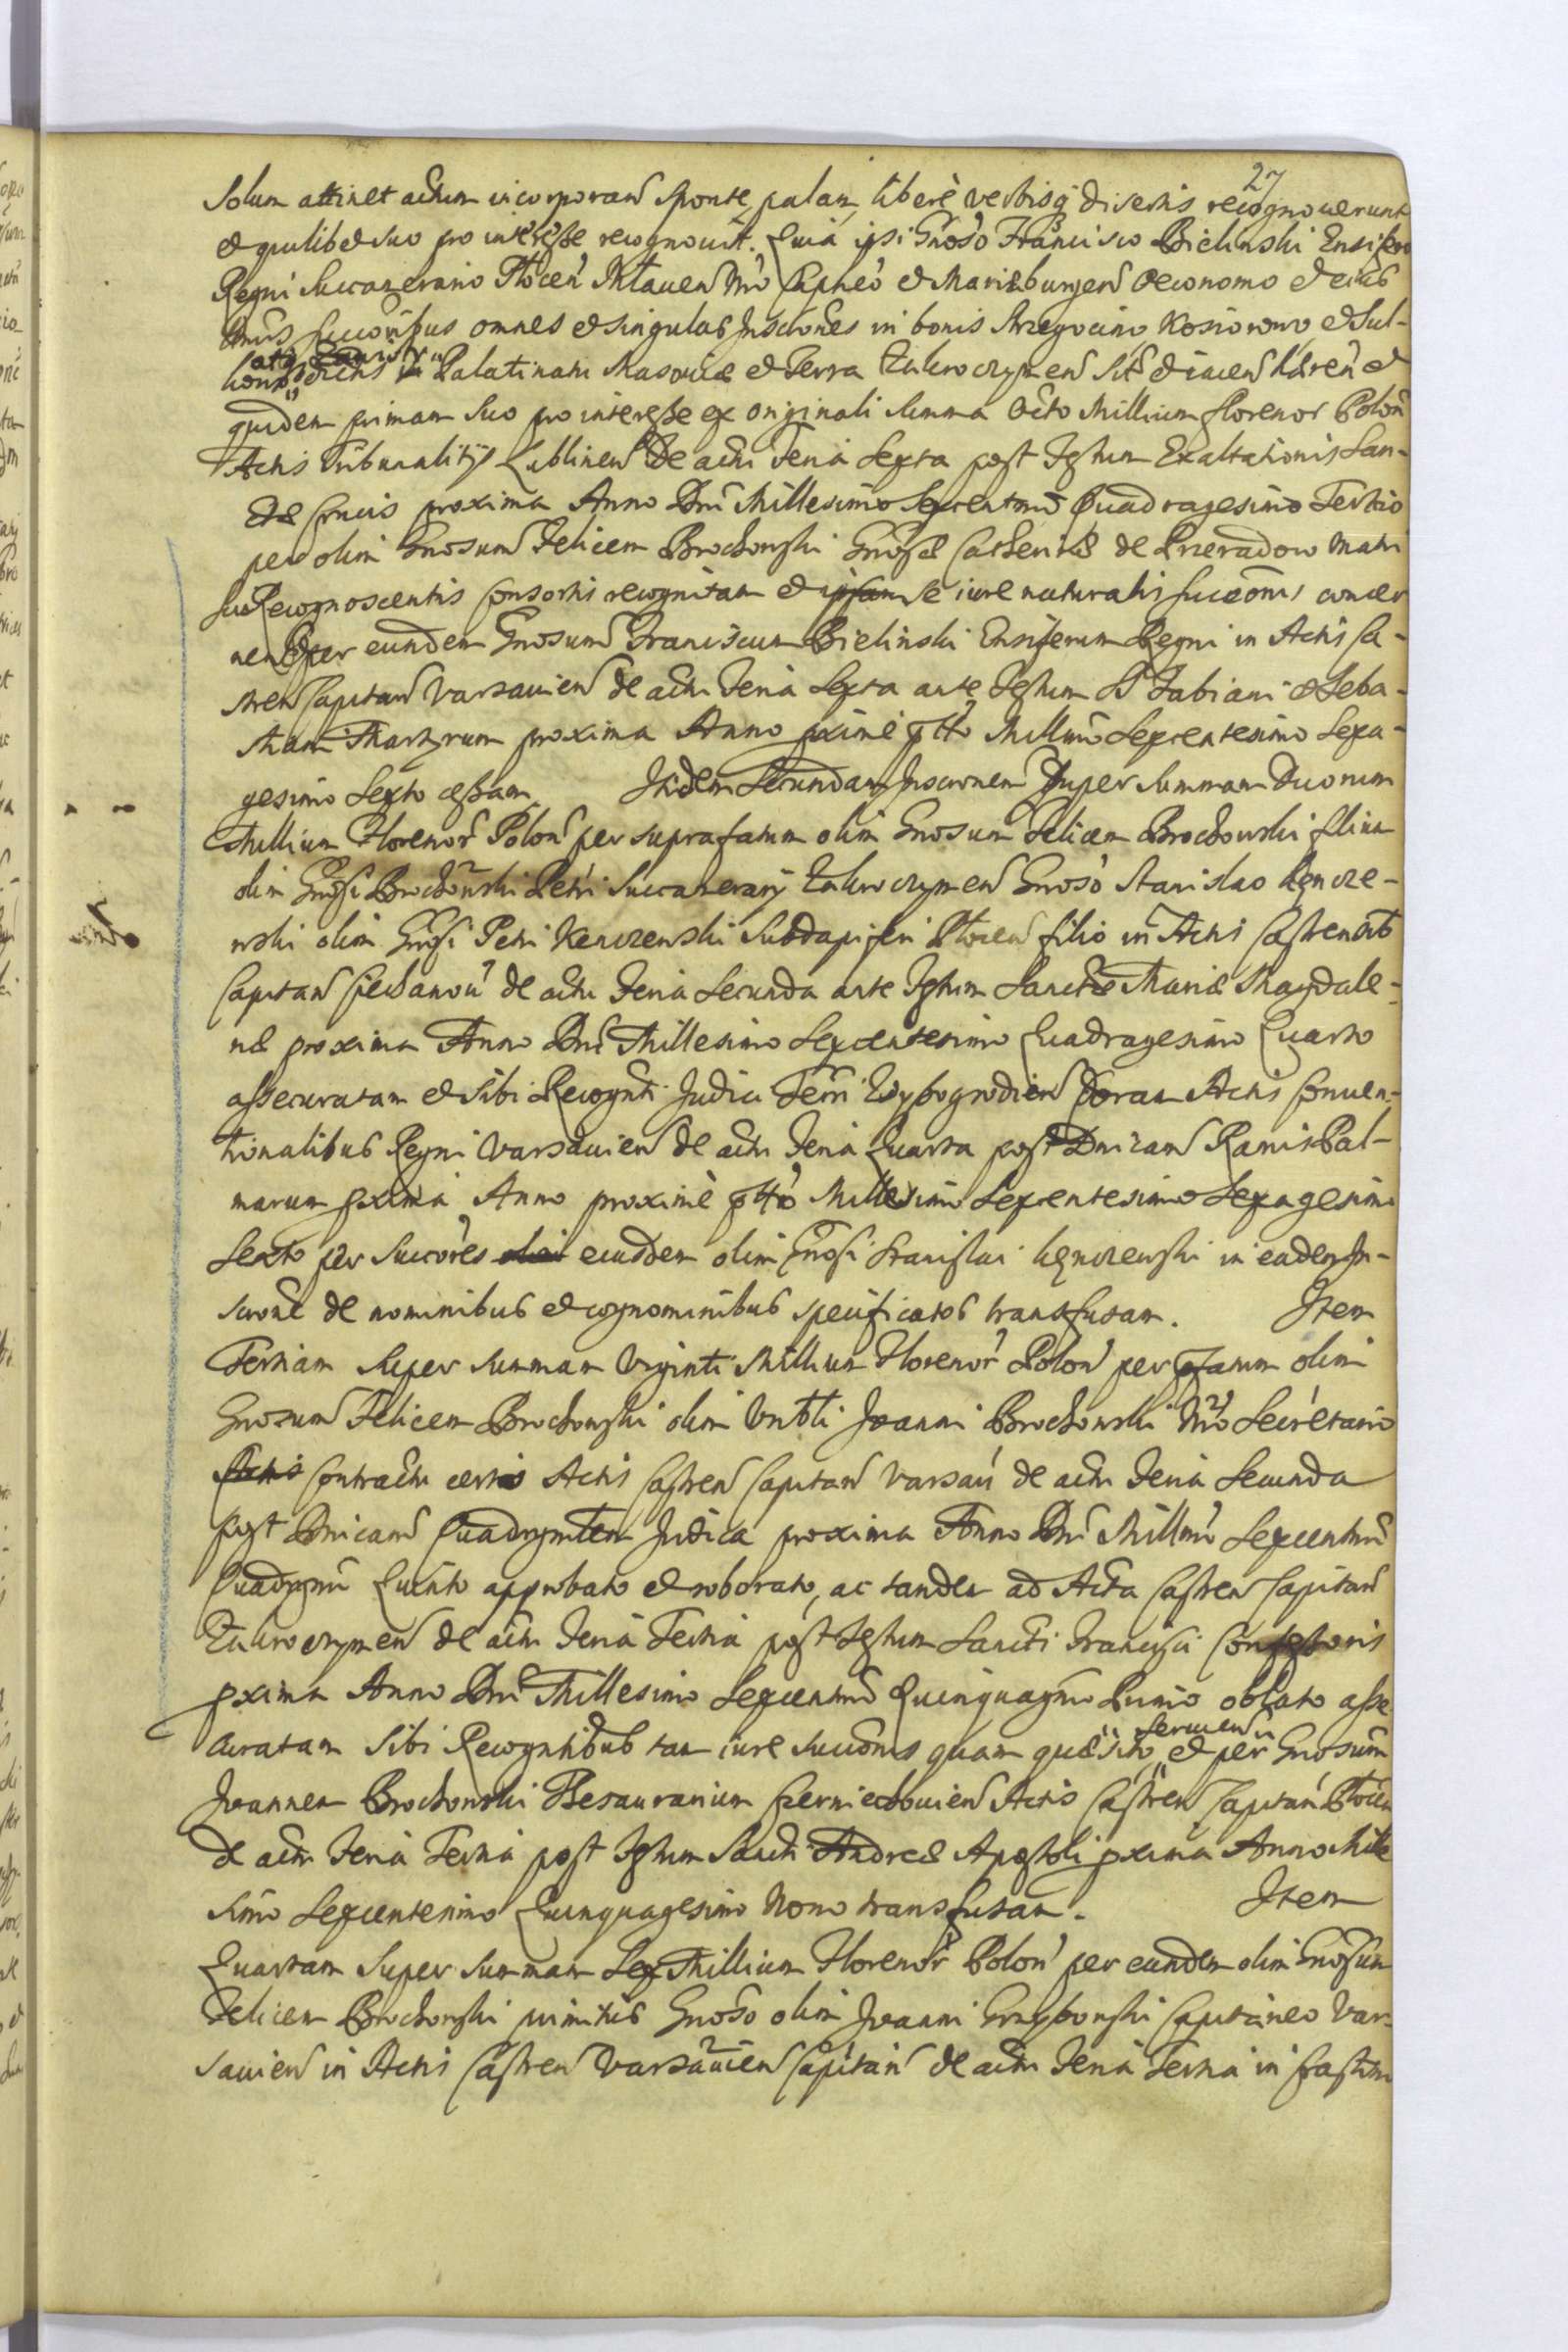 27
solum attinet actum incorporan sponte, palam, liberè verbisq disertis recognoverunt
et quilibet suo pro interesse recognovit. Quia ipsi Gnoso Francisco Bielinski Ensifero
Regni Succamerario Plocen Mlaven Capneo et Mariæburgen Oeconomo et eius
succoribus omnes et singulas Inscrones in bonis Strzegocino Kosiorowo et Sul-
atq
kowo dictis in Palatinatu Masoviæ et Terra Zakroczymen sitis et iacen haben et
quidem primam suo pro interesse ex originali summa Octo Millium florenor Polon
Actis Tribunalitijs Lublinen de actu Feria Sexta post Festum Exaltationis San-
ctæ Crucis proxima Anno Dni Millesimo Sexcentmo Quadragesimo Tertio
per olim Gnosum Felicem Brochowski Gnosæ Catherinæ de Przeradow matri
suæ Recognoscentis consorti recognitam et ipsam se iure naturalis succonis concer
nen per eundem Gnosum Franciscum Bielinski Ensiferum Regni in Actis Ca-
stren Capitan Varsavien de actu Feria Sexta ante Festum SS Fabiani et Seba-
stiani Martyrum proxima Anno pximè ptto Millmo Sexcentesimo Sexa-
gesimo Sexto cessam Itidem Secundam Inscronem super summam Duorum
Millium Florenor Polon per suprafatum olim Gnosum Felicem Brochowski filium
olim Gnosi Brochowski Petri Succamerarij Zakroczymen Gnoso Stanislao Kęncze-
wski olim Gnosi Petri Kenczewski Subdapiferi Plocen filio in Actis Castrensib
Capitan Ciechanov de actu Feria Secunda ante Festum Sanctæ Mariæ Magdale-
næ proxima Anno Dni Millesimo Sexcentesimo Quadragesimo Quarto
assecuratam et sibi Recognti Judici Terri Wyszogrodien coram Actis Conven-
tionalibus Regni Varsavien de actu Feria Quarta post Dnicam Ramis Pal-
marum pxima Anno proximè ptto Millesimo Sexcentesimo Sexagesimo
Sexto per succores olim eiusdem olim Gnosi Stanislai Kęnczewski in eadem In-
scrone de nominibus et cognominibus specificatos transfusam. Item
Tertiam super summam Viginti Millium Florenor Polon per pfatum olim
Gnosum Felicem Brochowski olim Joanni Brochowski Secretario
Actis Contractu certo Actis Castren Capitan Varsav de actu Feria Secunda
post Dnicam Quadragmlem Judica proxima Anno Dni Millmo Sexcentmo
Quadrgmo Quinto approbato et roborato, ac tandem ad Acta Castren Capitan
Zakroczymen de actu Feria Tertia post Festum Sancti Francisci Confessoris
pxima Anno Dni Millesimo Sexcentmo Quinquagmo Primo oblato asse
servien
curatam sibi Recogntibus tam iure succonis quam quæsito et per Gnosum
Joannem Brochowski Thesaurarium Czerniechovien Actis Castren Capitan Plocen
de actu Feria Tertia post Festum Sancti Andreæ Apostoli pxima Anno Mille
simo Sexcentesimo Quinquagesimo Nono transfusam. Item
Quartam super summam Sex Millium Florenor Polon per eundem olim Gnosum
Felicem Brochowski primitus Gnoso olim Joanni Grzybowski Capitaneo Var-
savien in Actis Castren Varsavien Capitan de actu Feria Tertia in Crastino